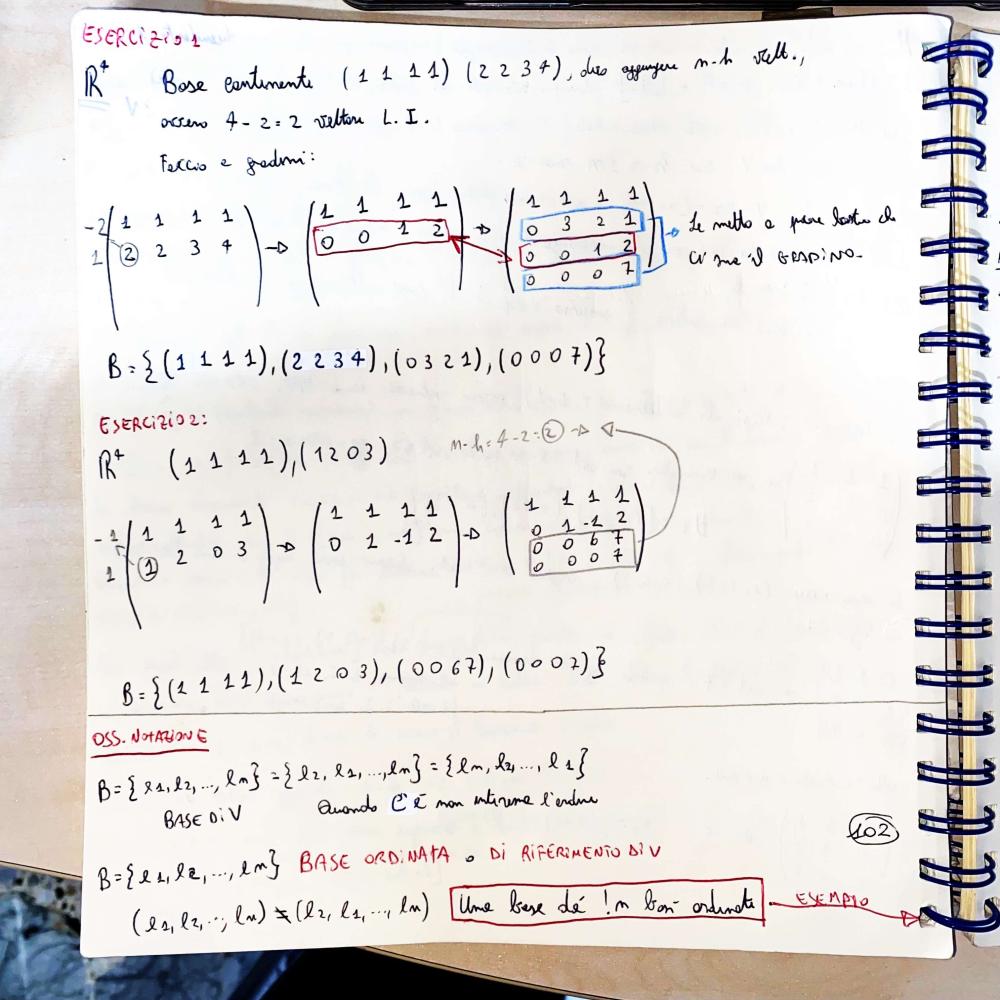 ESERCIZIO 1
ℝ⁴ Base contenente (1 1 1 1) (2 2 3 4), devo aggiungere n-h vett.,
ovvero 4-2=2 vettori L.I.
Faccio a gradini:
-2 1 1 1 1 → 1 1 1 1 → 1 1 1 1
1 2 2 3 4 0 0 1 2 0 3 2 1 → Le metto a piacere basta che
0 0 1 2 ci sia il GRADINO.
0 0 0 7
B={(1 1 1 1),(2 2 3 4),(0 3 2 1),(0 0 0 7)}
ESERCIZIO 2:
n-h=4-2=2 →
ℝ⁴ (1 1 1 1),(1 2 0 3)
-1 1 1 1 1 → 1 1 1 1 → 1 1 1 1
1 1 2 0 3 0 1 -1 2 0 1 -1 2
0 0 6 7
0 0 0 7
B={(1 1 1 1),(1 2 0 3),(0 0 6 7),(0 0 0 7)}
OSS. NOTAZIONE
B={e1,e2,...,en}={e2,e1,...,en}={en,e2,...,e1}
BASE DI V Quando c'è non interessa l'ordine
102
B={e1,e2,...,en} BASE ORDINATA o DI RIFERIMENTO DI V
(e1,e2,...,en) ≠ (e2,e1,...,en) Una base dà !n basi ordinate → ESEMPIO